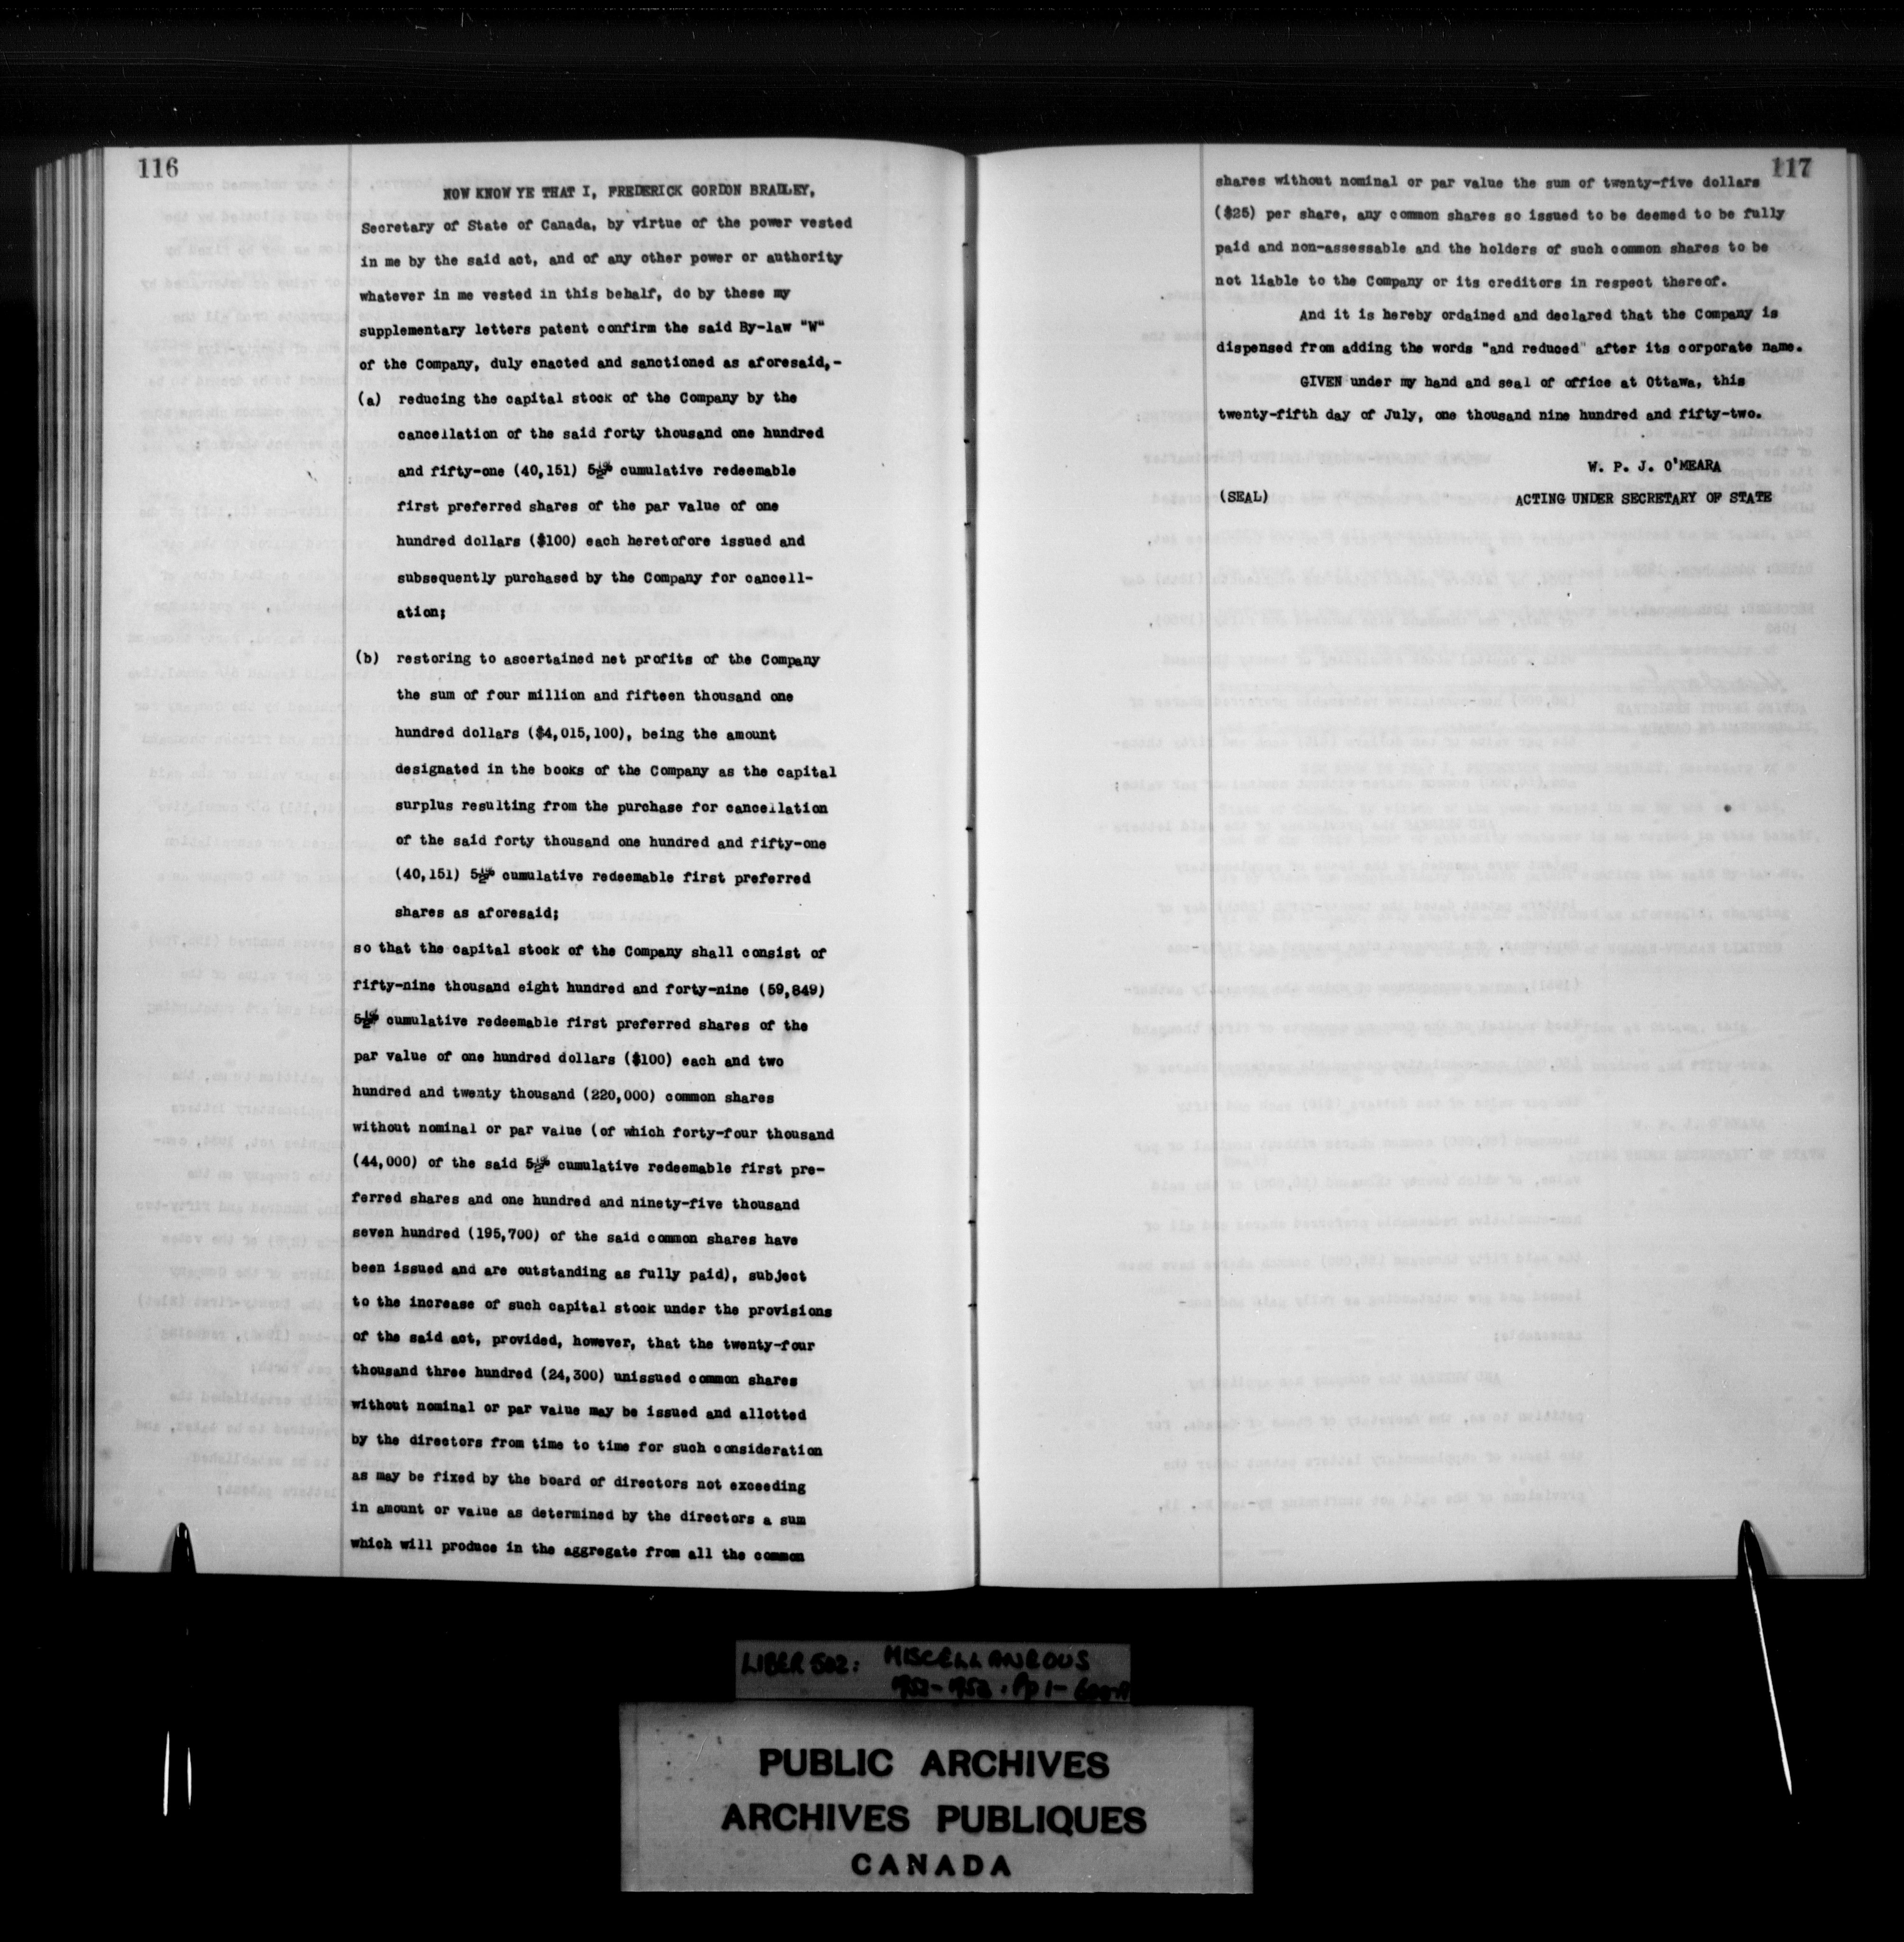 116
NOW KNOW YE THAT I, FREDERICK GORDON BRADLEY,
Secretary of State of Canada, by virtue of the power vested
in me by the said act, and of any other power or authority
whatever in me vested in this behalf, do by these my
supplementary letters patent confirm the said By-law "W"
of the Company, duly enacted and sanctioned as aforesaid,-
(a) reducing the capital stock of the Company by the
cancellation of the said forty thousand one hundred
and fifty-one (40,151) 5½% cumulative redeemable
first preferred shares of the par value of one
hundred dollars ($100) each heretofore issued and
subsequently purchased by the Company for cancell-
ation;
(b) restoring to ascertained net profits of the Company
the sum of four million and fifteen thousand one
hundred dollars ($4,015,100), being the amount
designated in the books of the Company as the capital
surplus resulting from the purchase for cancellation
of the said forty thousand one hundred and fifty-one
(40,151) 5½% cumulative redeemable first preferred
shares as aforesaid;
so that the capital stock of the Company shall consist of
fifty-nine thousand eight hundred and forty-nine (59,849)
5½% cumulative redeemable first preferred shares of the
par value of one hundred dollars ($100) each and two
hundred and twenty thousand (220,000) common shares
without nominal or par value (of which forty-four thousand
(44,000) of the said 5½% cumulative redeemable first pre-
ferred shares and one hundred and ninety-five thousand
seven hundred (195,700) of the said common shares have
been issued and are outstanding as fully paid), subject
to the increase of such capital stock under the provisions
of the said act, provided, however, that the twenty-four
thousand three hundred (24,300) unissued common shares
without nominal or par value may be issued and allotted
by the directors from time to time for such consideration
as may be fixed by the board of directors not exceeding
in amount or value as determined by the directors a sum
which will produce in the aggregate from all the common
117
shares without nominal or par value the sum of twenty-five dollars
($25) per share, any common shares so issued to be deemed to be fully
paid and non-assessable and the holders of such common shares to be
not liable to the Company or its creditors in respect thereof.
And it is hereby ordained and declared that the Company is
dispensed from adding the words "and reduced" after its corporate name.
GIVEN under my hand and seal of office at Ottawa, this
twenty-fifth day of July, one thousand nine hundred and fifty-two.
W. P. J. O'MEARA
(SEAL) ACTING UNDER SECRETARY OF STATE
LIBER 502: MISCELLANEOUS
Pp 1-
PUBLIC ARCHIVES
ARCHIVES PUBLIQUES
CANADA